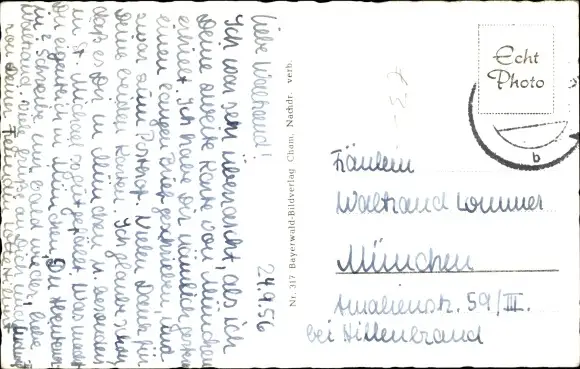 24.9.56
Liebe Waltraud!
Ich war sehr überrascht, als ich
Deine zweite Karte von München
erhielt. Ich habe Dir nämlich gestern
einen langen Brief geschrieben, und
zwar zum Postamt. Vielen Dank für
Deine beiden Karten. Ich glaube schon,
daß es Dir in München bes. besonders
in St. Michael so gut gefällt. Was machst
Du eigentlich in München, Du
Waltraud. Viele Grüße an Dich und
von Deiner Freundin
Nr. 317 Bayerwald-Bildverlag Cham. Nachdr. verb.
Echt
Photo
b
Fräulein
Waltraud Lommer
München
Amalienstr. 59/III.
bei Hillenbrand